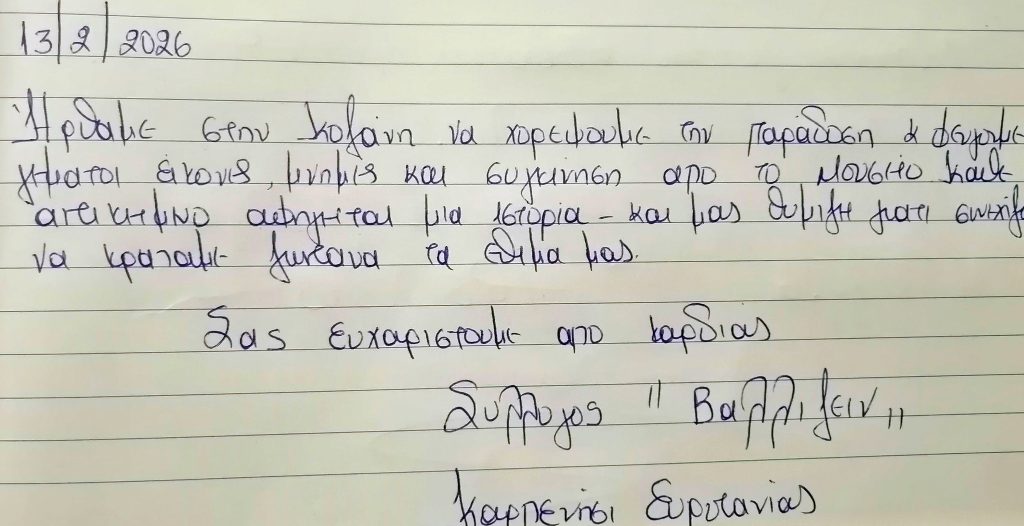 13/2/2026
Ήρθαμε στην Κοζάνη να χορεψουμε την παράδοση & φευγομε
γεματοι εικονες, μνημες και συγκινηση απο το μουσειο καθε
αντικειμενο αφηγειται μια ιστορια - και μας θυμιζει γιατι συνεχιζ
να κραταμε ζωντανα τα εθιμα μας.
Σας ευχαριστουμε απο καρδιας
Συλλογος "Βαλλιζειν"
Καρπενησι Ευρυτανιας